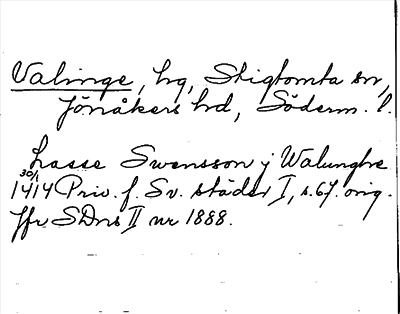 Valinge, hg, Stigtomta sn,
Jönåkers hd, Söderm. l.
Lasse Swensson j Walunghe
30/1 1414 Priv. f. Sv. städer I, s. 67. orig.
Jfr SDns II nr 1888.